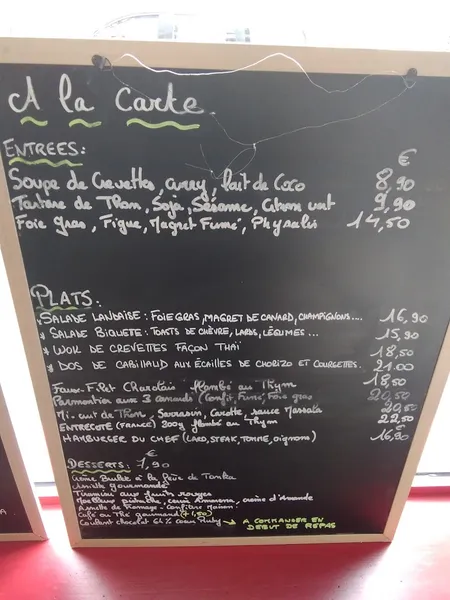 A la Carte
ENTREES:
€
Soupe de Crevettes, curry, lait de Coco 8,90
Tartare de Thon, Soja, Sésame, Citron vert 9,90
Foie gras, Figue, Magret Fumé, Physalis 14,50
PLATS:
* SALADE LANDAISE : FOIE GRAS, MAGRET DE CANARD, CHAMPIGNONS.... 16,90
* SALADE BIQUETE : TOASTS DE CHÈVRE, LARDS, LÉGUMES ... 15,90
* WOK DE CREVETTES FAÇON THAÏ 18,50
* DOS DE CABILLAUD AUX ÉCAILLES DE CHORIZO ET COURGETTES. 21.00
Faux-Filet Charolais flambé au Thym 18,50
Parmentier aux 3 canards (Confit, Fumé, Foie gras 20,50
Mi-cuit de Thon, Sarrasin, Carotte, sauce Massala 20,50
ENTRECOTE (FRANCE) 300g flambé au Thym 22,50
HAMBURGER DU CHEF (LARD, STEAK, TOMME, oignons) 16,90
DESSERTS. €
1,90
Crème Brulée à la fève de Tonka
Assiette gourmande
Tiramisu aux fruits rouges
Moelleux pistache, crème d'Amande
Assiette de fromage - Confiture Maison.
Café ou Thé gourmand (+1,50)
Coulant chocolat 64% coeur Ruby → A COMMANDER EN
DEBUT DE REPAS